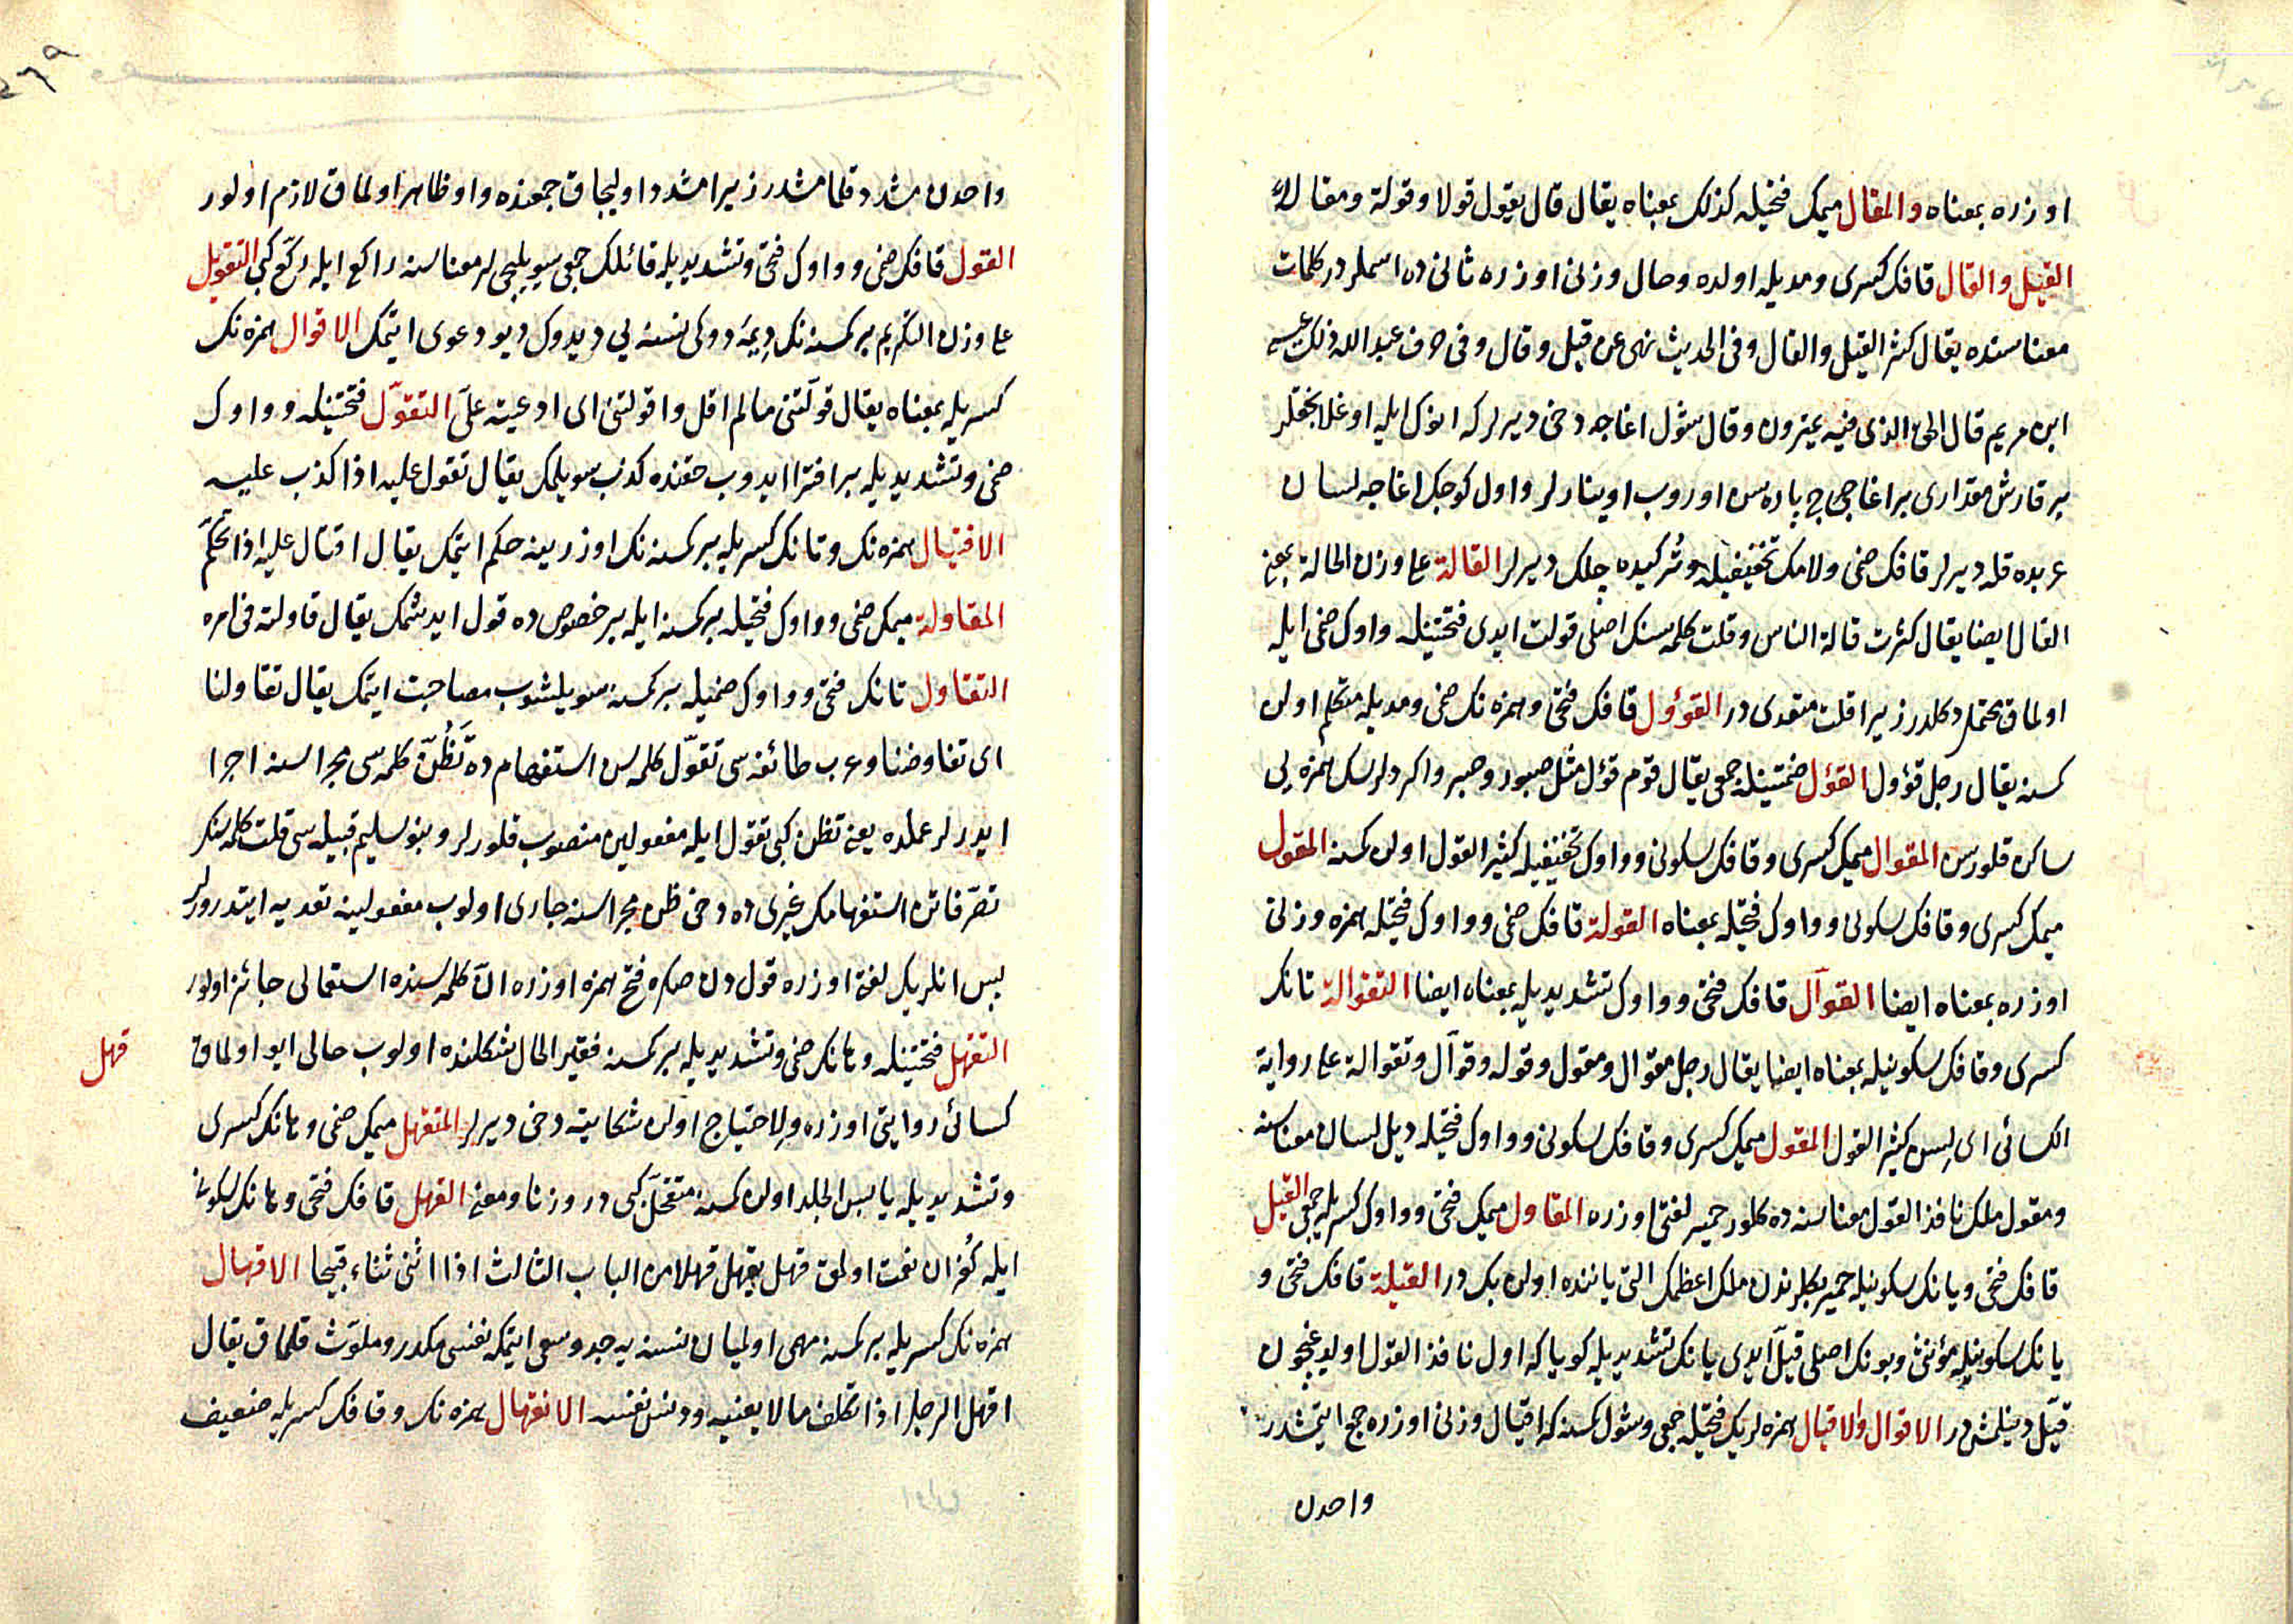 اوزره بمعناه والمقال ميمك فتحيله كذلك بمعناه يقال قال يقول قولا وقولة ومقالا
القيل والقال قافك كسرى ومديله اولده وحال وزنى اوزره ثانى ده اسملر در كلمات
معناسنده يقال كثر القيل والقال وفى الحديث نهى عن قيل وقال وفى حرف عبد الله ذلك عيسى
ابن مريم قال الحق الذى فيه يمترون وقال شول اغاجه دخى ديرلر كه انوك ايله اوغلانجقلر
بر قارش مقدارى بر اغاجى اوروب اوينارلر واول كوجك اغاجه لسان
عربده قله ديرلر قافك ضمى ولامك تخفيفيله وتركيده چلك ديرلر القالة على وزن الحالة بمعنى
القال ايضا يقال كثرت قالة الناس وقلت كلمه سنك اصلى قولت ايدى فتحتينله واوك ضمى ايله
اولماق محتمل دكلدر زيرا قلت متعدى در القوؤل قافك فتحى وهمزه نك ضمى ومديله متكلم اولن
كمسنه يقال رجل قوؤل القؤل ضمتينله جمعى يقال قوم قؤل مثل صبور وصبر واكر ديلرسك همزه يى
ساكن قلورسن المقوال ميمك كسرى وقافك سكونى وواوك تخفيفيله كثير القول اولن كمسنه المقول
ميمك كسرى وقافك سكونى وواوك فتحيله بمعناه القولة قافك ضمى وواوك فتحيله همزه وزنى
اوزره بمعناه ايضا القوال قافك فتحى وواوك تشديديله بمعناه ايضا التقوالة تانك
كسرى وقافك سكونيله بمعناه ايضا يقال رجل مقوال ومقول وقوله وقوال وتقوالة على رواية
الكسائى اى لسن كثير القول المقول ميمك كسرى وقافك سكونى وواوك فتحيله ديل لسان معناسنه
ومقول ملك نافذ القول معناسنه ده كلور حمير لغتى اوزره المقاول ميمك فتحى وواوك كسريله جمعى القيل
قافك فتحى ويانك سكونيله حمير بكلرندن ملك اعظمك التى ياننده اولن بك در القيلة قافك فتحى و
يانك سكونيله مؤنثى وبونك اصلى قيل ايدى يانك تشديديله كويا كه اول نافذ القول اولديغيچون
قيل دينلمشدر الاقوال والاقيال همزه لريك فتحيله جمعى وشول كمسنه كه اقيال وزنى اوزره جمع ايتمشدر
واحدن
واحدن مشدد قلمامشدر زيرا مشدد اوليجاق جمعنده واو ظاهر اولماق لازم اولور
القول قافك ضمى وواوك فتحى وتشديديله قائلك جمعى سويليجيلر معناسنه راكع ايله ركع كبى التقويل
على وزن التكريم بر كمسنه نك ديمدوكى نسنه يى ديدوك ديو دعوى ايتمك الاقوال همزه نك
كسريله بمعناه يقال قولتنى مالم اقل واقولتنى اى ادعيته على التقول فتحتينله وواوك
ضمى وتشديديله بر افترا ايدوب حقنده كذب سويلمك يقال تقول عليه اذا كذب عليه
الاقتيال همزه نك وتانك كسريله بر كمسنه نك اوزرينه حكم ايتمك يقال اقتال عليه اذا تحكم
المقاولة ميمك ضمى وواوك فتحيله بر كمسنه ايله بر خصوص ده قول ايدشمك يقال قاولته فى امره
التقاول تانك فتحى وواوك ضميله بر كمسنه سويلشوب مصاحبت ايتمك يقال تقاولنا
اى تفاوضنا وعرب طائفه سى تقول كلمه سن استفهام ده تظن كلمه سى مجراسنه اجرا
ايدرلر عملده يعنى تظن كبى تقول ايله مفعولين منصوب قلورلر وبنو سليم قبيله سى قلت كلمه سنك
تصرفاتن استفهامك غيرى ده دخى ظن مجراسنه جارى اولوب مفعولينه تعديه ايتدرورلر
پس انلريك لغتى اوزره قول دن صكره فتح همزه اوزره ان كلمه سنده استعمالى جائز اولور
التقهل فتحتينله وهانك ضمى وتشديديله بر كمسنه فقير الحال شكلنده اولوب حالى ايو اولماق
قهل
كسائى روايتى اوزره ولاحتياج اولن شكايته دخى ديرلر المتقهل ميمك ضمى وهانك كسرى
وتشديديله يابس الجلد اولن كمسنه متقحل كبى در وزنا ومعنى القهل قافك فتحى وهانك سكونى
ايله كفران نعمت اولمق قهل يقهل قهلا من الباب الثالث اذا اثنى ثناء قبيحا الاقهال
همزه نك كسريله بر كمسنه مهمى اولميان نسنه يه جد وسعى ايتمكله نفسى مكدر وملوث قلماق يقال
اقهل الرجل اذا تكلف مالا يعنيه ودنس نفسه الانقهال همزه نك وقافك كسريله ضعيف